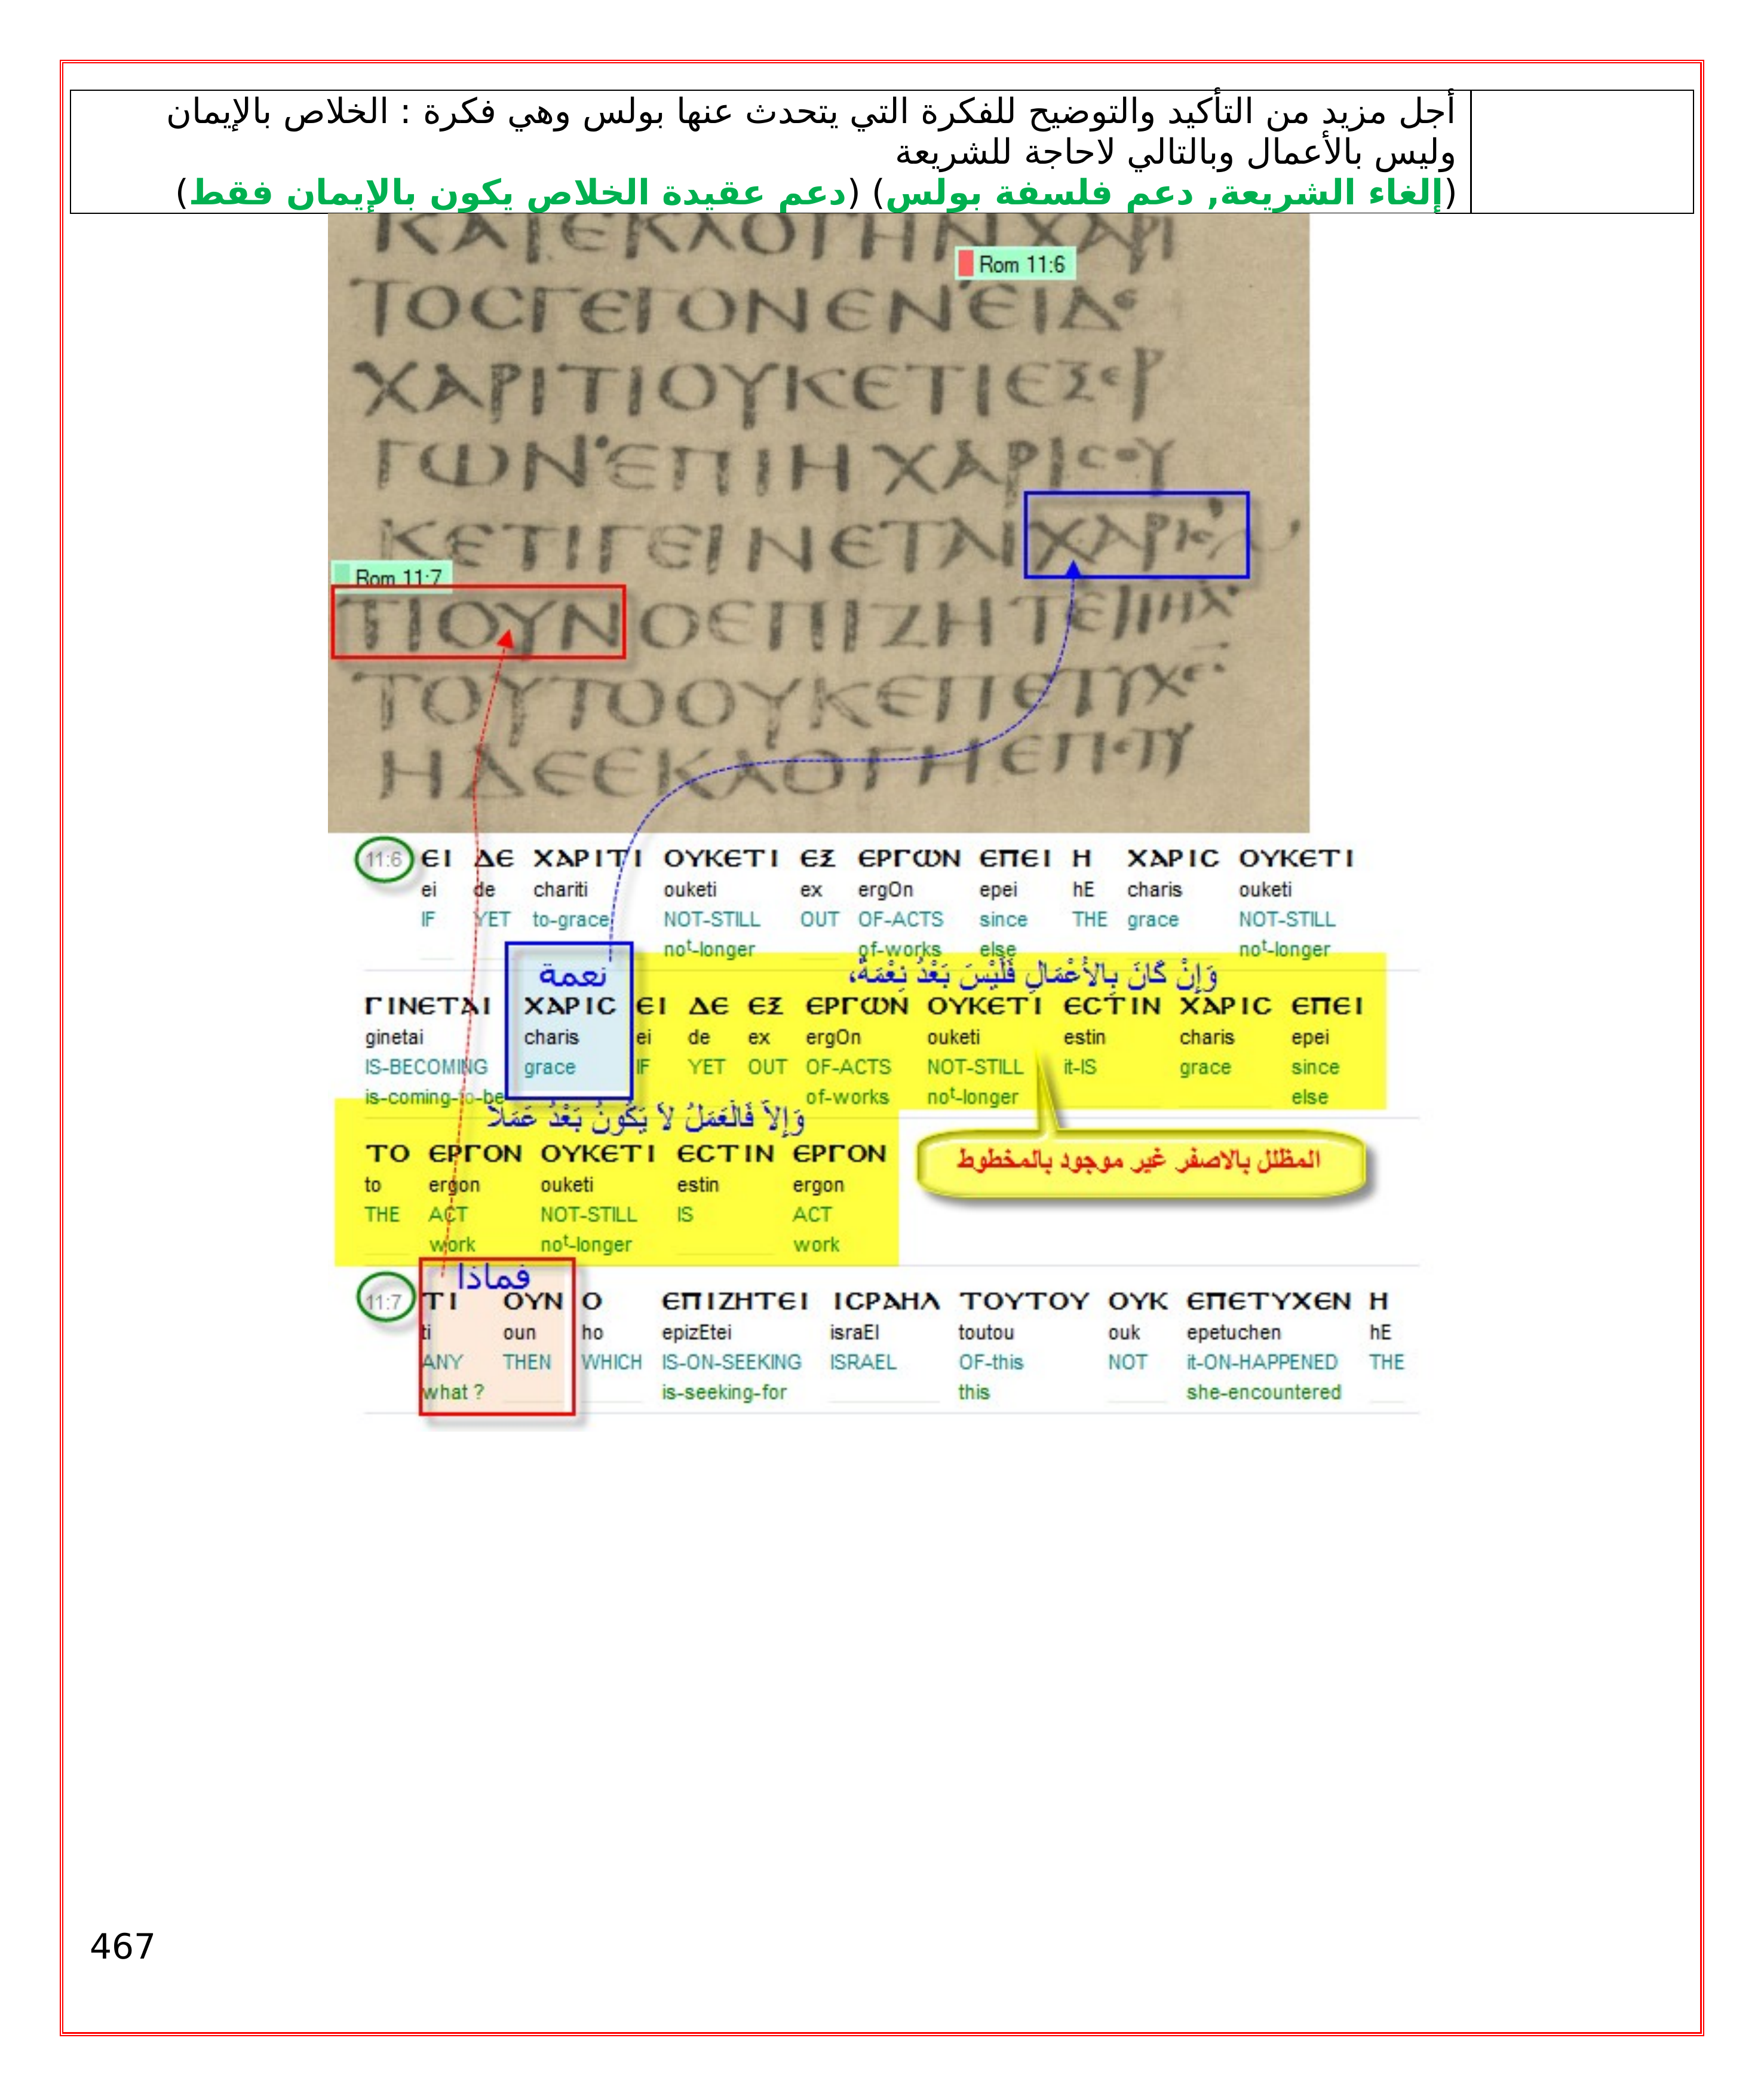 أجل مزيد من التأكيد والتوضيح للفكرة التي يتحدث عنها بولس وهي فكرة : الخلاص بالإيمان
وليس بالأعمال وبالتالي لاحاجة للشريعة
(إلغاء الشريعة, دعم فلسفة بولس) (دعم عقيدة الخلاص يكون بالإيمان فقط)
ΚΑΙΕΚΛΟΓΗΝΧΑΡΙ
Rom 11:6
ΤΟϹΓΕΓΟΝΕΝΕΙΔΕ
ΧΑΡΙΤΙΟΥΚΕΤΙΕΞΕΡ
ΓΩΝΕΠΙΗΧΑΡΙϹΟΥ
ΚΕΤΙΓΕΙΝΕΤΑΙΧΑΡΙϹ
Rom 11:7
ΤΙΟΥΝΟΕΠΙΖΗΤΕΙΙΗΛ
ΤΟΥΤΟΟΥΚΕΠΕΤΥΧΕ
ΗΔΕΕΚΛΟΓΗΕΠΕΤΥ
11:6 ΕΙ ΔΕ ΧΑΡΙΤΙ ΟΥΚΕΤΙ ΕΞ ΕΡΓΩΝ ΕΠΕΙ Η ΧΑΡΙϹ ΟΥΚΕΤΙ
ei de chariti ouketi ex ergOn epei hE charis ouketi
IF YET to-grace NOT-STILL OUT OF-ACTS since THE grace NOT-STILL
not-longer of-works else not-longer
نعمة وَإِنْ كَانَ بِالأَعْمَالِ فَلَيْسَ بَعْدُ نِعْمَةً،
ΓΙΝΕΤΑΙ ΧΑΡΙϹ ΕΙ ΔΕ ΕΞ ΕΡΓΩΝ ΟΥΚΕΤΙ ΕϹΤΙΝ ΧΑΡΙϹ ΕΠΕΙ
ginetai charis ei de ex ergOn ouketi estin charis epei
IS-BECOMING grace IF YET OUT OF-ACTS NOT-STILL it-IS grace since
is-coming-to-be of-works not-longer else
وَإِلاَّ فَالْعَمَلُ لاَ يَكُونُ بَعْدُ عَمَلاً
ΤΟ ΕΡΓΟΝ ΟΥΚΕΤΙ ΕϹΤΙΝ ΕΡΓΟΝ
المظلل بالاصفر غير موجود بالمخطوط
to ergon ouketi estin ergon
THE ACT NOT-STILL IS ACT
work not-longer work
فماذا
11:7 ΤΙ ΟΥΝ Ο ΕΠΙΖΗΤΕΙ ΙϹΡΑΗΛ ΤΟΥΤΟΥ ΟΥΚ ΕΠΕΤΥΧΕΝ Η
ti oun ho epizEtei israEl toutou ouk epetuchen hE
ANY THEN WHICH IS-ON-SEEKING ISRAEL OF-this NOT it-ON-HAPPENED THE
what ? is-seeking-for this she-encountered
467